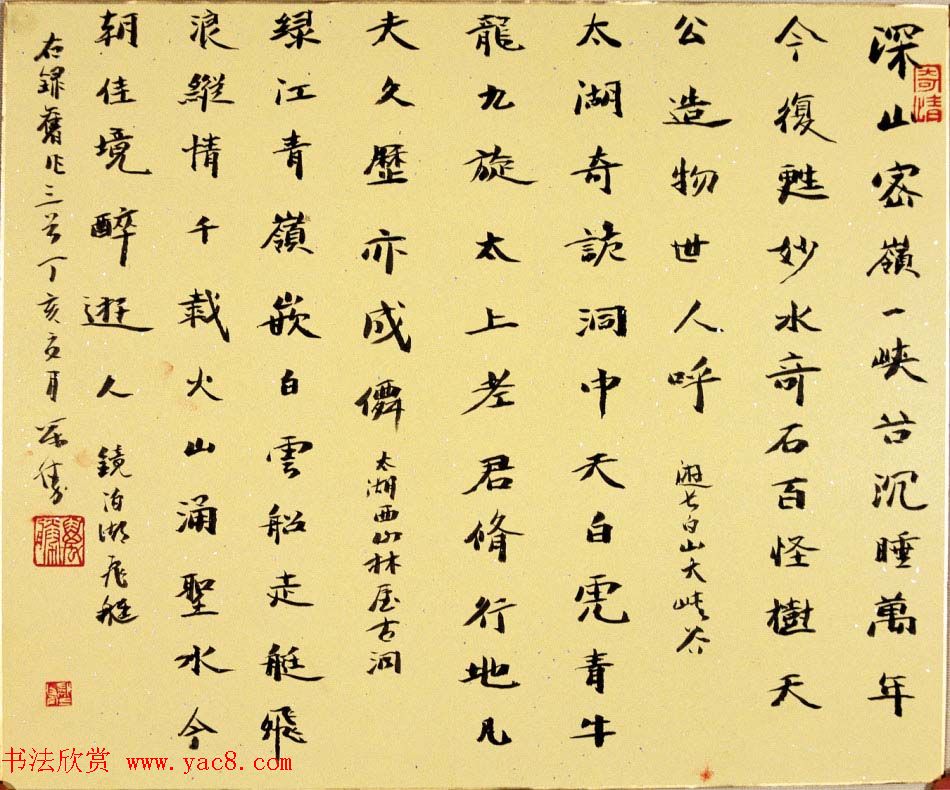 深山密嶺一峽谷沉睡萬年
今復甦妙水奇石百怪樹天
公造物世人呼 遊長白山大峽谷
太湖奇詭洞中天白虎青牛
龍九旋太上老君脩行地凡
夫久歷亦成僊 太湖西山林屋古洞
綠江青嶺嵌白雲船走艇飛
浪縱情千載火山涌聖水今
朝佳境醉遊人 鏡泊湖飛艇
右錄舊作三首丁亥月
奇情
书法欣赏 www.yac8.com